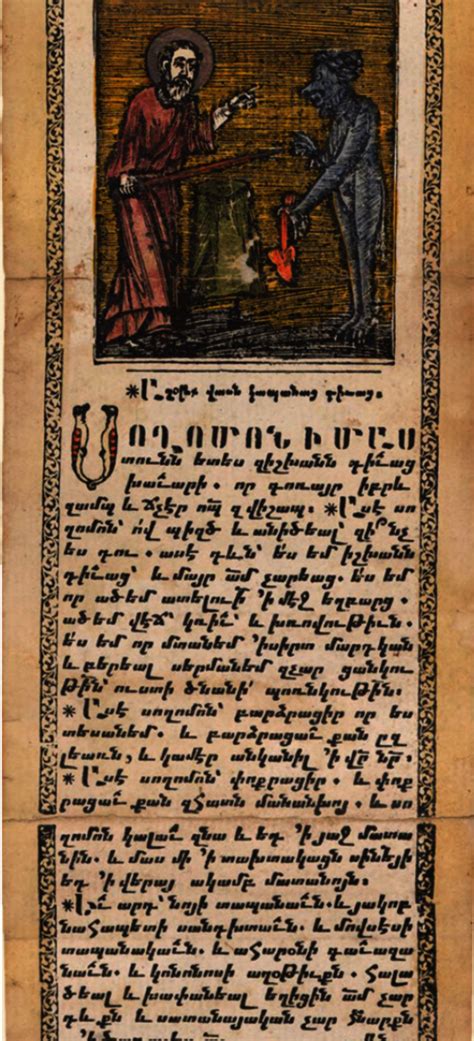 ✳Աղօթք վասն խափանաց դիւաց.
ՍՈՂՈՄՈՆ ԻՄԱՍ
տունն ետես զիշխանն դիւաց
խաւարի . որ գոռայր իբրև
զամպ և ճչէր ո՟պ զվիշապ . ✳Ասէ սո
ղոմոն՝ ով պիղծ և անիծեալ զի՞նչ
ես դու . ասէ դևն՝ ես եմ իշխանն
դիւաց՝ և մայր ա՟մ չարեաց . ես եմ
որ ածեմ ատելուի ՚ի մէջ եղբարց .
ածեմ վէճ՝ կռիւ՝ և խռովութիւն .
ես եմ որ մտանեմ ՚իսիրտ մարդկան
և բերեալ սերմանեմ զչար ցանկու
թին՝ ուստի ծնանի՝ պոռնկութին.
✳Ասէ սողոմոն՝ բարձրացիր որ ես
տեսանեմ . և բարձրացաւ քան զը
լեառն , և կամէր անկանիլ ՚ի վ՟ր ն՟ր .
✳Ասէ սողոմոն՝ փոքրացիր . և փոք
րացաւ քան զհատն մանանխոյ . և սո
ղոմոն կալաւ զնա և եդ ՚ի յաջ մատա
նին . և մաս մի ՚ի տախտակացն սինեյի
եդ ՚ի վերայ ական մատանոյն .
✳Եւ արդ՝ նոյի տապանաւն . և յակոբ
նահապետի սանդխտաւն . և մովսեսի
տապանակաւն . և ահարօնի գաւազա
նաւն . և կոնոնոսի աղօթիւքն . հալա
ծեալ և խափանեալ եղիցին ա՟մ չար
դևքն և սատանայական չար հնարքն